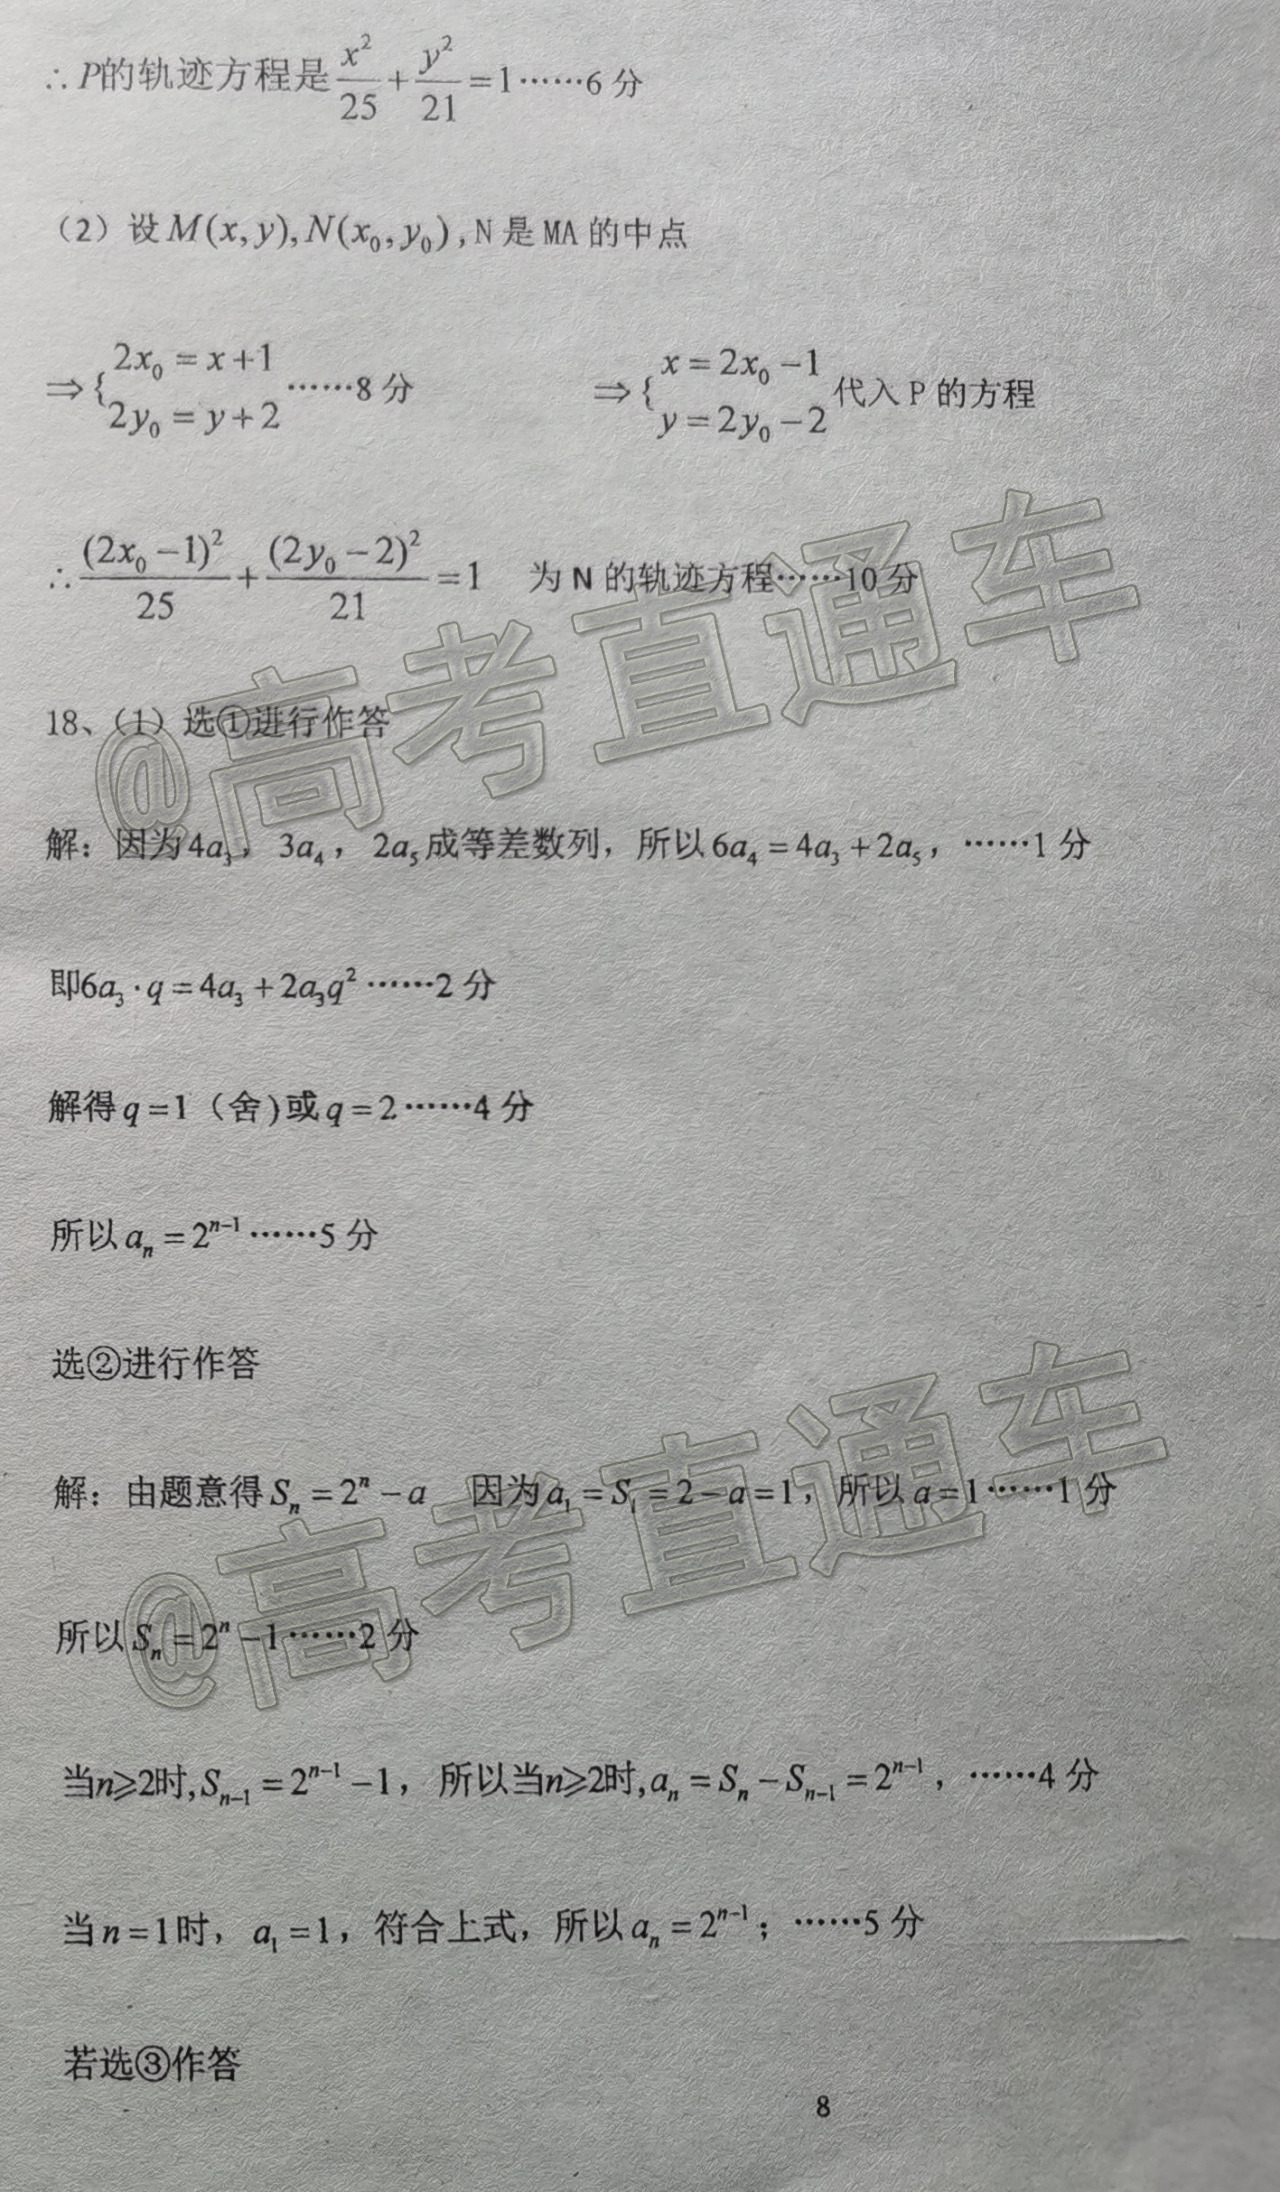 ∴P的轨迹方程是 x²/25 + y²/21 = 1……6 分
（2）设 M(x, y), N(x₀, y₀), N 是 MA 的中点
⇒{ 2x₀ = x+1 2y₀ = y+2 ……8 分 ⇒{ x = 2x₀ −1 y = 2y₀ −2 代入 P 的方程
∴ (2x₀ −1)²/25 + (2y₀ −2)²/21 = 1 为 N 的轨迹方程……10 分
18、（1）选①进行作答
解：因为 4a₃， 3a₄， 2a₅ 成等差数列，所以 6a₄ = 4a₃ + 2a₅，……1 分
即6a₃ · q = 4a₃ + 2a₃q² ……2 分
解得 q = 1（舍)或 q = 2 ……4 分
所以 aₙ = 2ⁿ⁻¹ ……5 分
选②进行作答
解：由题意得 Sₙ = 2ⁿ − a 因为 a₁ = S₁ = 2 − a = 1，所以 a = 1……1 分
所以 Sₙ = 2ⁿ − 1 ……2 分
当n⩾2时, Sₙ₋₁ = 2ⁿ⁻¹ − 1， 所以当n⩾2时, aₙ = Sₙ − Sₙ₋₁ = 2ⁿ⁻¹，……4 分
当 n = 1时， a₁ = 1，符合上式，所以 aₙ = 2ⁿ⁻¹；……5 分
若选③作答
8
@高考直通车
@高考直通车